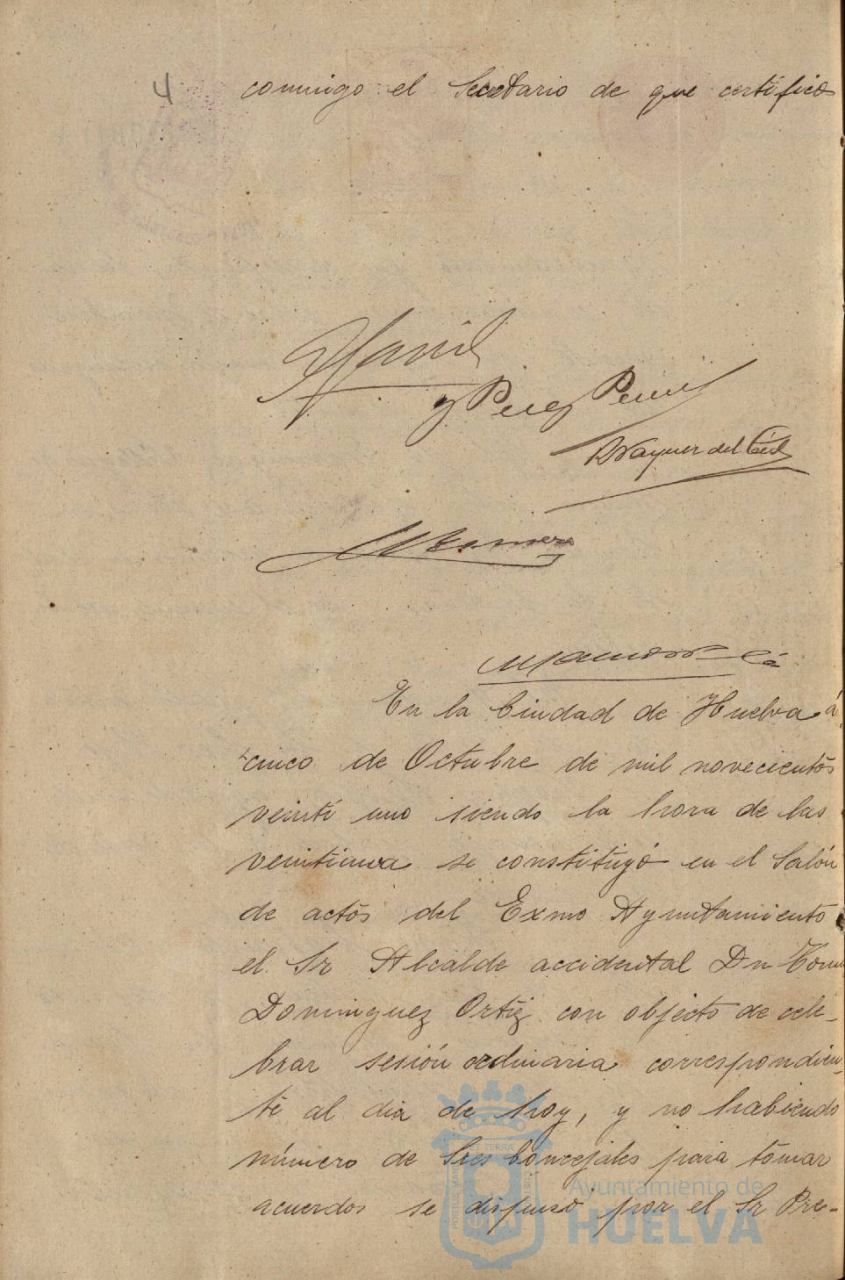 4
conmigo el Secretario de que certifico
y Perez
En la Ciudad de Huelva á
cinco de Octubre de mil novecientos
veinti uno siendo la hora de las
veintiuna se constituyó en el Salón
de actos del Exmo Ayuntamiento
el Sr Alcalde accidental Dn
Dominguez Ortiz con objeto de cele-
brar sesión ordinaria correspondien-
te al dia de hoy, y no habiendo
número de Sres Concejales para tomar
acuerdos se dispuso por el Sr Pre-
Ayuntamiento de
HUELVA